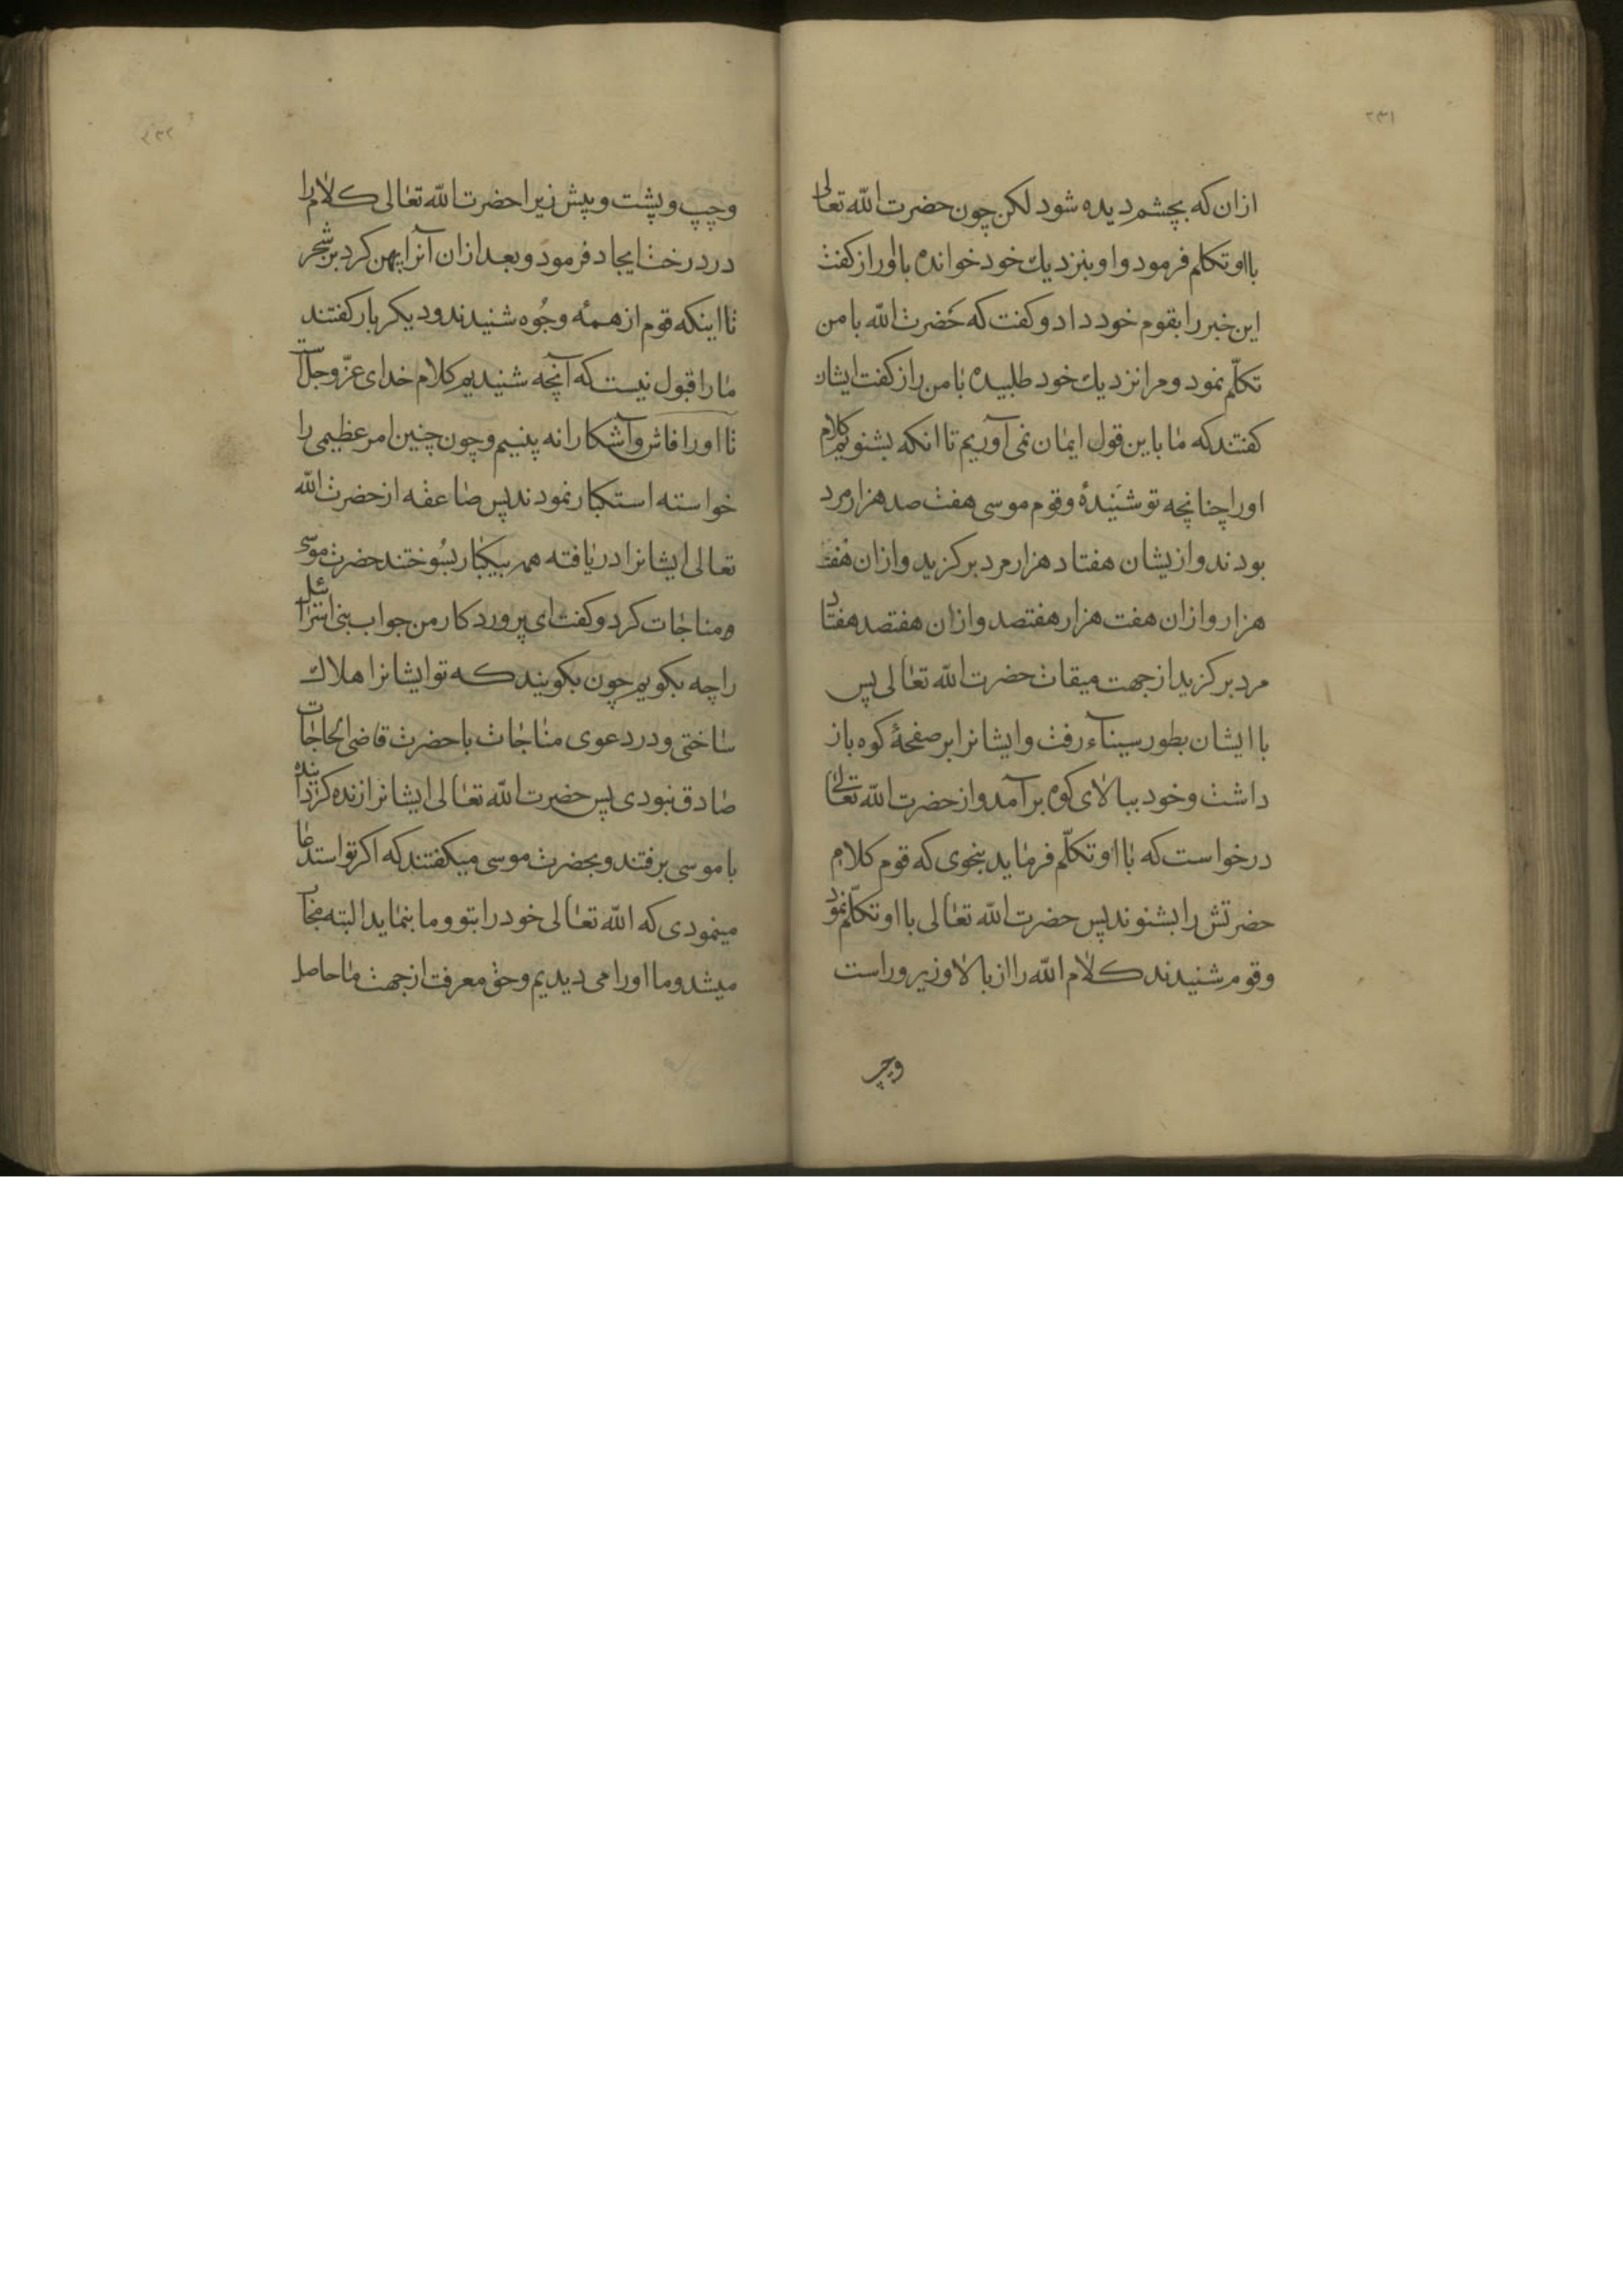 ۲۳۱
ازان که بچشم دیده شود لکن چون حضرت الله تعالی
بااو تکلم فرمود و او بنزدیك خود خوانده بااو راز کفت
این خبر را بقوم خود داد و کفت که حضرت الله با من
تکلّم نمود و مرا نزدیك خود طلبیده با من راز کفت ایشان
کفتند که ما باین قول ایمان نمی آوریم تا انکه بشنویم کلام
اورا چنانچه تو شنیدهٔ و قوم موسی هفت صد هزار مرد
بودند و ازیشان هفتاد هزار مرد برکزید و ازان هفت
هزار و ازان هفت هزار هفتصد و ازان هفتصد هفتاد
مرد برکزید از جهت میقات حضرت الله تعالی پس
با ایشان بطور سیناء رفت و ایشانرا بر صفحهٔ کوه باز
داشت و خود ببالای کوه برآمد و از حضرت الله تعالی
درخواست که با او تکلّم فرماید بنحوی که قوم کلام
حضرتش را بشنوند پس حضرت الله تعالی با او تکلّم نمود
و قوم شنیدند کلام الله را از بالا و زیر و راست
وچپ
۲۳۲
وچپ و پشت و پیش زیرا حضرت الله تعالی کلام را
در درخت ایجاد فرمود و بعد ازان آنرا پهن کرد بر شجر
تا اینکه قوم از همهٔ وجُوه شنیدند و دیکر بار کفتند
ما را قبول نیست که آنچه شنیدیم کلام خدای عزّ و جلّ است
تا اورا فاش و آشکارا نه بینیم و چون چنین امر عظیمی را
خواسته استکبار نمودند پس صاعقه از حضرت الله
تعالی ایشانرا دریافته همه بیکبار بسُوختند حضرت موسی
مناجات کرد و کفت ای پروردکار من جواب بنی اسرائیل
را چه بکویم چون بکویند که تو ایشانرا هلاك
ساختی و در دعوی مناجات با حضرت قاضی الحاجات
صادق نبودی پس حضرت الله تعالی ایشانرا زنده کردانیده
با موسی برفتند و بحضرت موسی میکفتند که اکر تو استدعا
مینمودی که الله تعالی خود را بتو و ما بنماید البته مجاب
میشد و ما اورا می دیدیم و حق معرفت از جهت ما حاصل